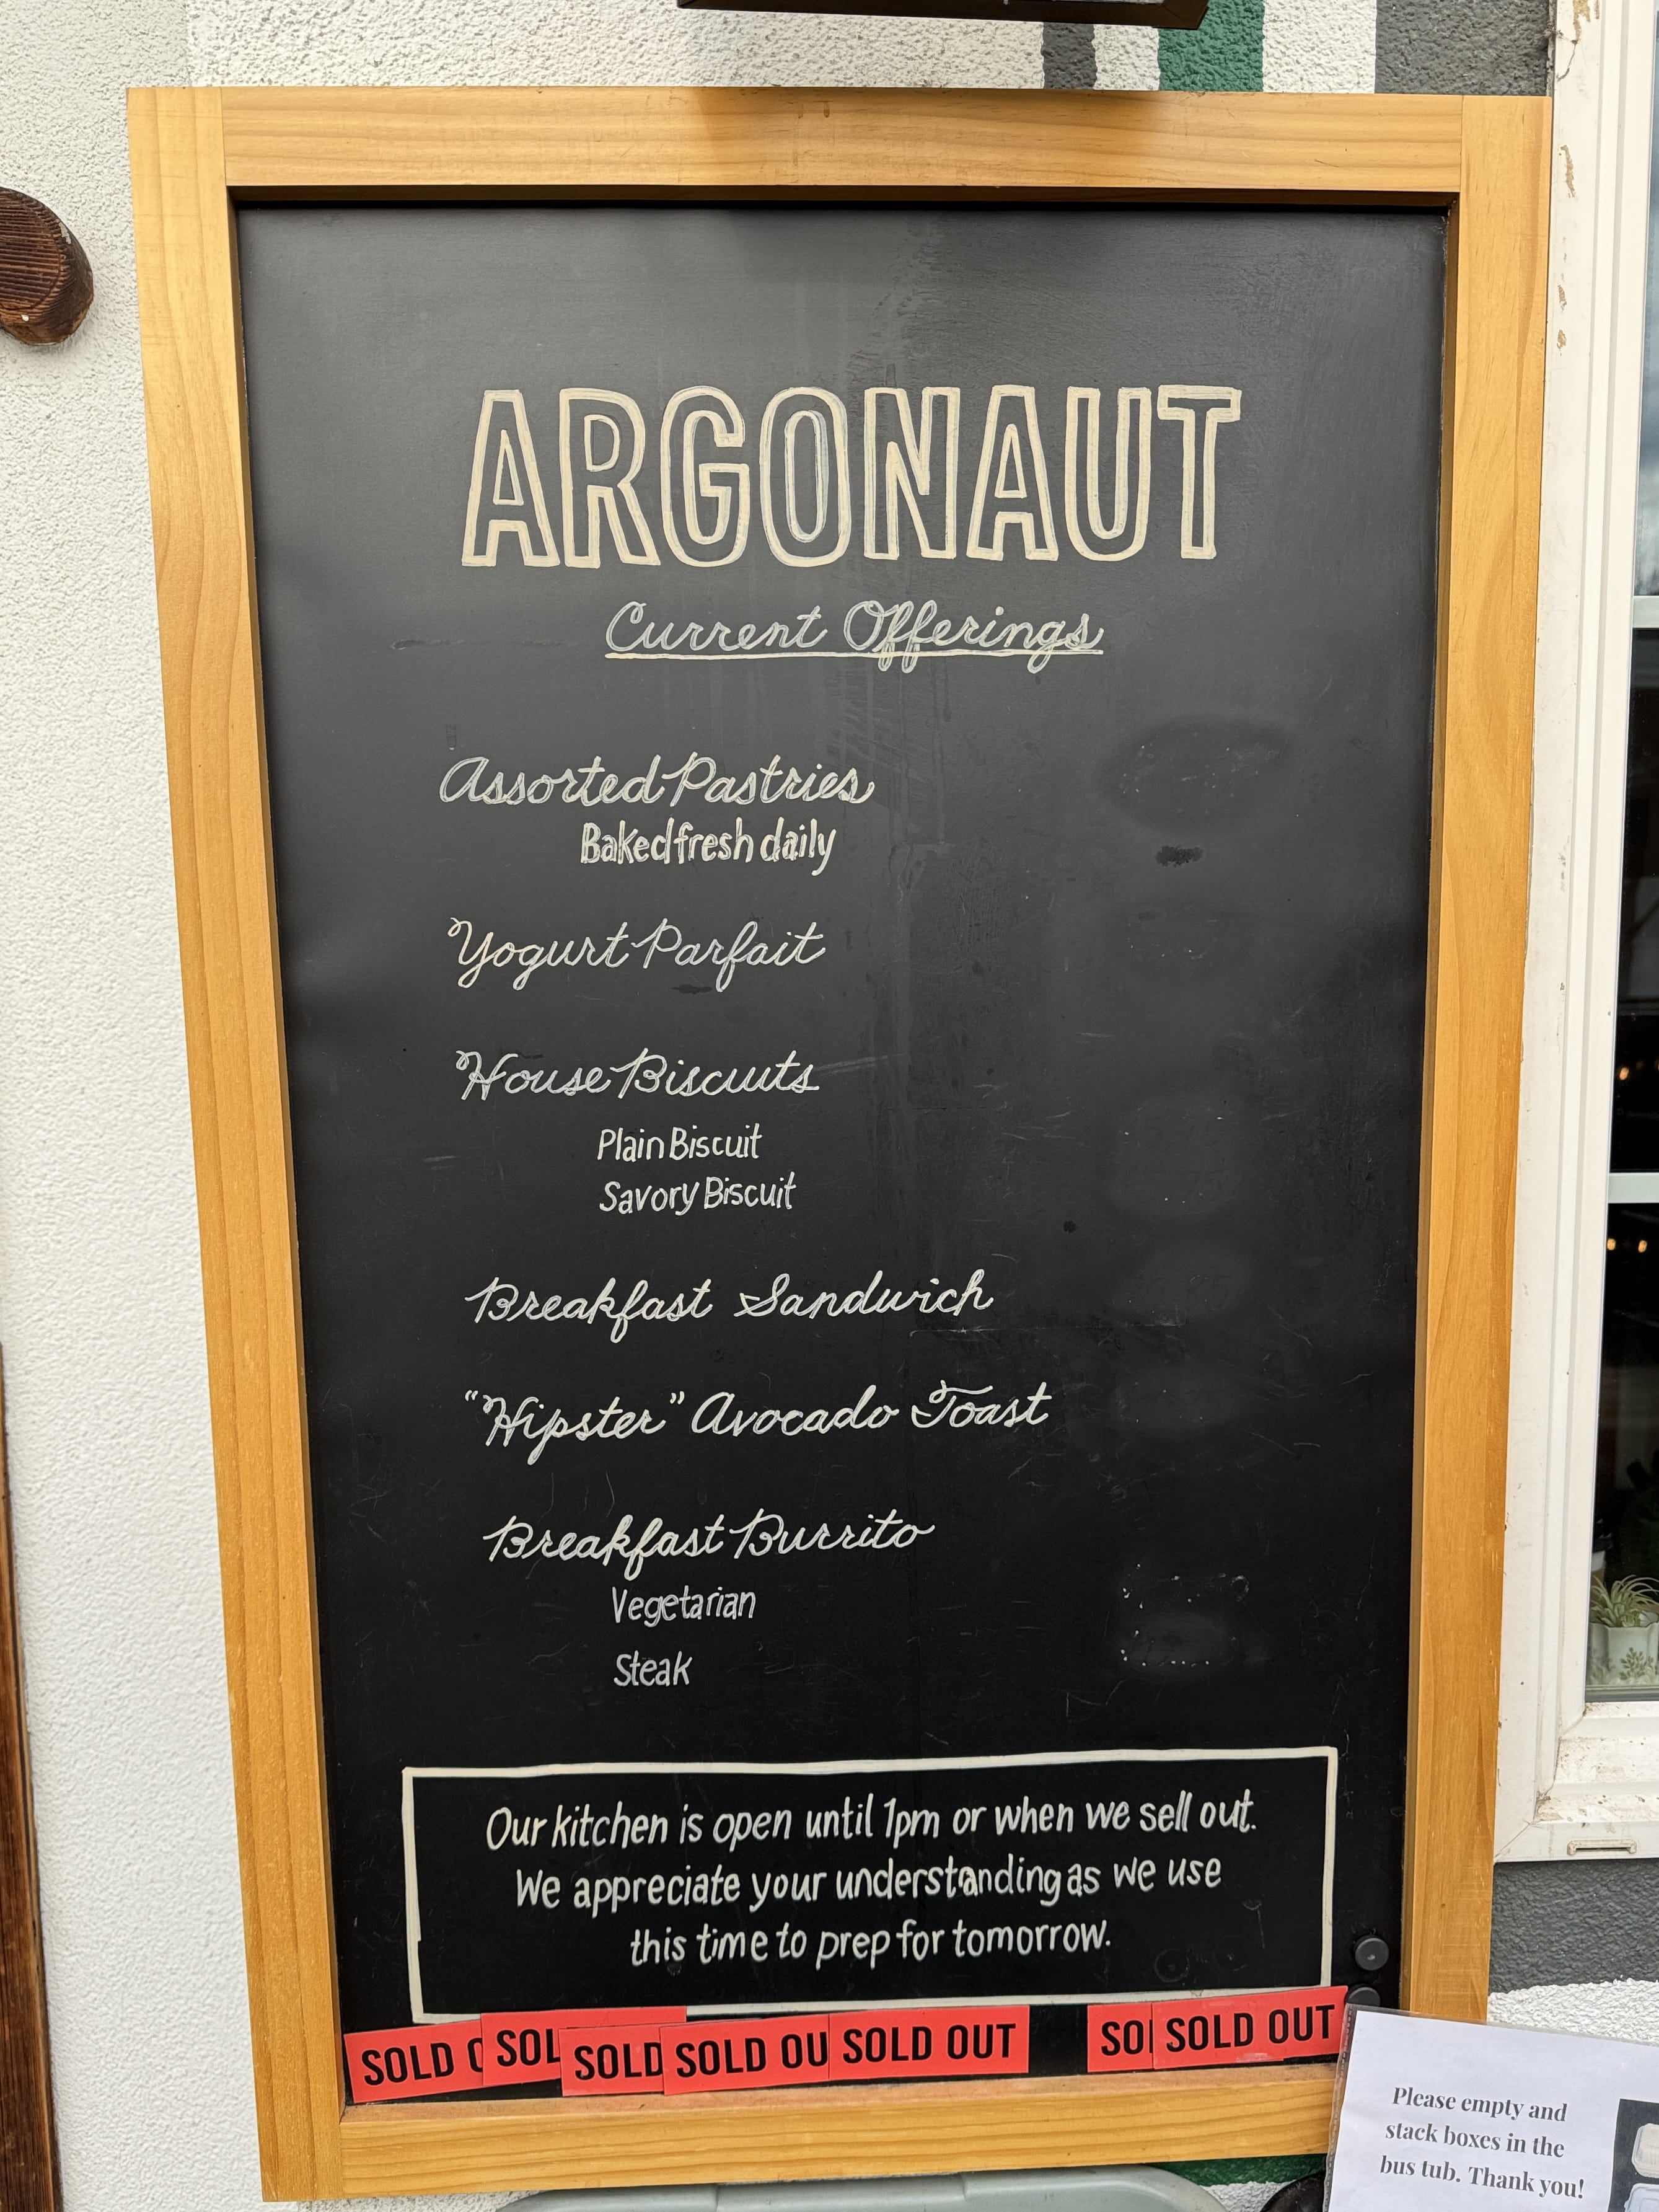 ARGONAUT
Current Offerings
Assorted Pastries
Baked fresh daily
Yogurt Parfait
House Biscuits
Plain Biscuit
Savory Biscuit
Breakfast Sandwich
"Hipster" Avocado Toast
Breakfast Burrito
Vegetarian
Steak
Our kitchen is open until 1pm or when we sell out.
We appreciate your understanding as we use
this time to prep for tomorrow.
SOLD O SOL SOLD SOLD OU SOLD OUT SO SOLD OUT
Please empty and
stack boxes in the
bus tub. Thank you!